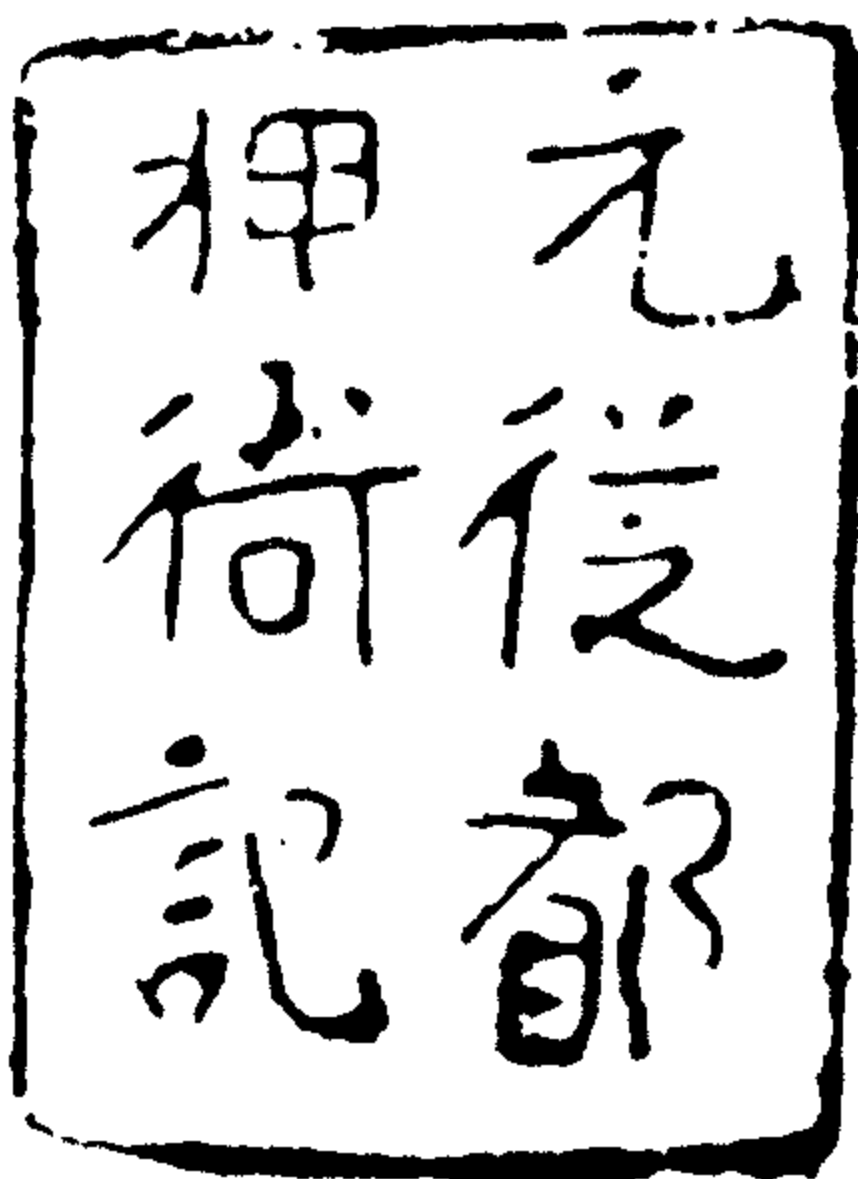 元從都
押衙記